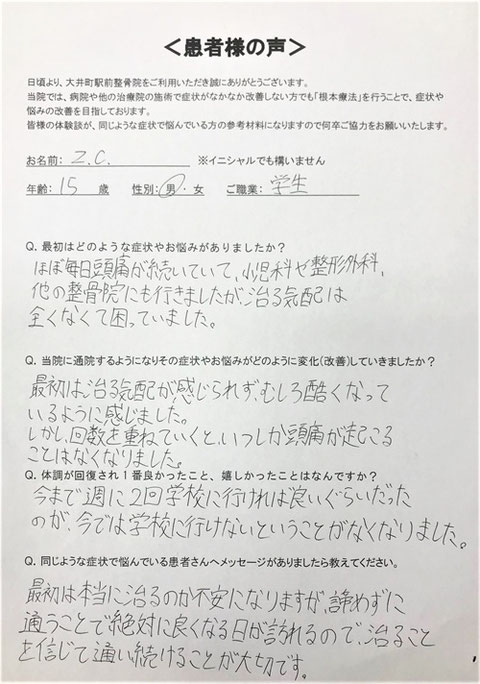 ＜患者様の声＞
日頃より、大井町駅前整骨院をご利用いただき誠にありがとうございます。
当院では、病院や他の治療院の施術で症状がなかなか改善しない方でも「根本療法」を行うことで、症状や
悩みの改善を目指しております。
皆様の体験談が、同じような症状で悩んでいる方の参考材料になりますので何卒ご協力をお願いいたします。
お名前： Z.C. ※イニシャルでも構いません
年齢： 15 歳 性別： 男 ・ 女 ご職業： 学生
Q. 最初はどのような症状やお悩みがありましたか？
ほぼ毎日頭痛が続いていて、小児科や整形外科、
他の整骨院にも行きましたが、治る気配は
全くなくて困っていました。
Q. 当院に通院するようになりその症状やお悩みがどのように変化（改善）していきましたか？
最初は治る気配が感じられず、むしろ酷くなって
いるように感じました。
しかし、回数を重ねていくと、いつしか頭痛が起こる
ことはなくなりました。
Q. 体調が回復され１番良かったこと、嬉しかったことはなんですか？
今まで週に2回学校に行ければ良いぐらいだった
のが、今では学校に行けないということがなくなりました。
Q. 同じような症状で悩んでいる患者さんへメッセージがありましたら教えてください。
最初は本当に治るのか不安になりますが、諦めずに
通うことで絶対に良くなる日が訪れるので、治ること
を信じて通い続けることが大切です。